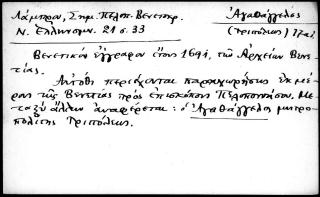 Λάμπρου, Σημ. Πελοπ. Βενετοκρ. Ἀγαθάγγελος
Ν. Ἑλληνομν. 21 σ. 33 (Τριπόλεως)
Βενετικὸν ἔγγραφον ἔτους 1691, τῶν Ἀρχείων Βενε
τίας.
Αὐτόθι περιέχονται παραχωρήσεις ἐκ μέ
ρους τῆς Βενετίας πρὸς ἐπισκόπους Πελοποννήσου. Με
ταξὺ ἄλλων ἀναφέρεται: ὁ Ἀγαθάγγελος μητρο
πολίτης Τριπόλεως.